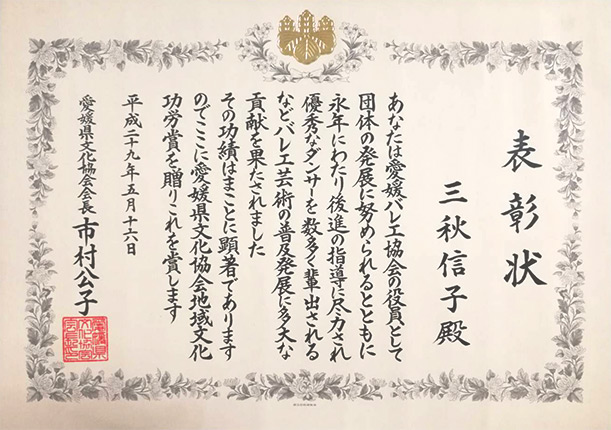 表彰状
三秋信子殿
あなたは愛媛バレエ協会の役員として
団体の発展に努められるとともに
永年にわたり後進の指導に尽力され
優秀なダンサーを数多く輩出される
など、バレエ芸術の普及発展に多大な
貢献を果たされました
その功績はまことに顕著であります
のでここに愛媛県文化協会地域文化
功労賞を贈りこれを賞します
平成二十九年五月十六日
愛媛県文化協会会長 市村公子